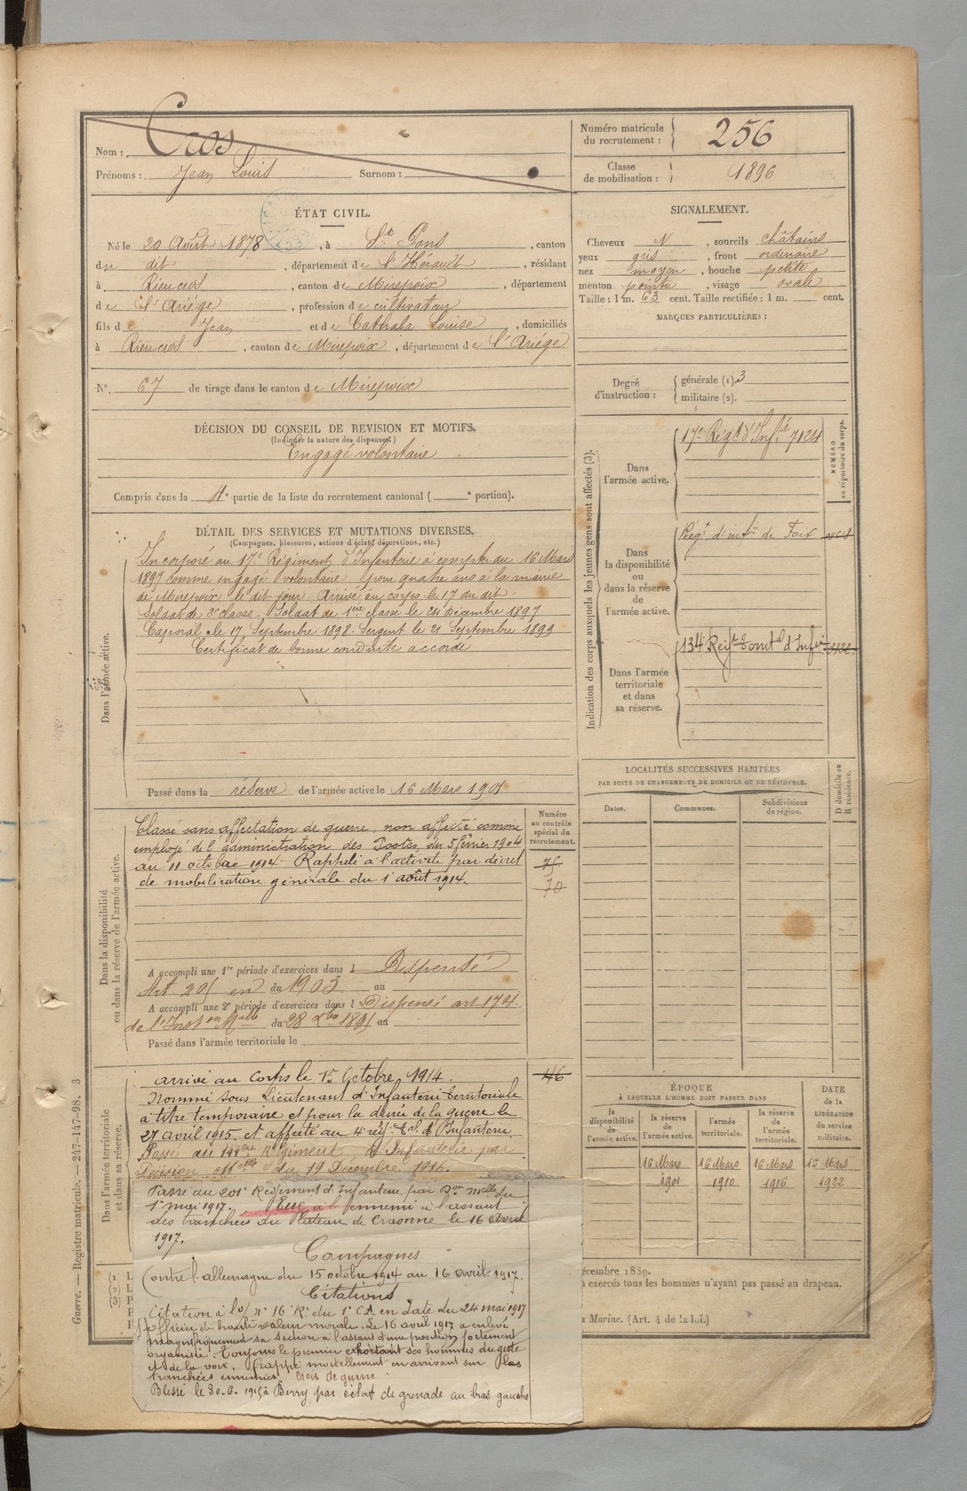 Nom : Cros
Prénoms : Jean Louis Surnom :
Numéro matricule du recrutement : 256
Classe de mobilisation : 1896
ÉTAT CIVIL.
Né le 20 Août 1878, à St Pons, canton
du dit, département de l'Hérault, résidant
à Rieucros, canton de Mirepoix, département
de l'Ariège, profession de cultivateur
fils de Jean et de Cathala Louise, domiciliés
à Rieucros, canton de Mirepoix, département de l'Ariège
N° 67 de tirage dans le canton de Mirepoix
SIGNALEMENT.
Cheveux N, sourcils châtains
yeux gris, front ordinaire
nez moyen, bouche petite
menton pointu, visage ovale
Taille : 1 m. 63 cent. Taille rectifiée : 1 m. cent.
MARQUES PARTICULIÈRES :
Degré d'instruction : générale (1). 3
militaire (2).
DÉCISION DU CONSEIL DE REVISION ET MOTIFS.
(Indiquer la nature des dispenses.)
Engagé volontaire
Compris dans la 4e partie de la liste du recrutement cantonal ( e portion).
DÉTAIL DES SERVICES ET MUTATIONS DIVERSES.
(Campagnes, blessures, actions d'éclat, décorations, etc.)
Dans l'armée active.
Incorporé au 17e Régiment d'Infanterie à compter du 16 Mars
1897 comme engagé volontaire pour quatre ans à la mairie
de Mirepoix le dit jour. Arrivé au corps le 17 du dit.
Soldat de 2e classe. Soldat de 1ère classe le 24 Décembre 1897
Caporal le 17 Septembre 1898. Sergent le 21 Septembre 1899
Certificat de bonne conduite accordé
Passé dans la réserve de l'armée active le 16 Mars 1901
Indication des corps auxquels les jeunes gens sont affectés (3).
NUMÉRO au répertoire du corps.
Dans l'armée active.
17e Régt d'Infie 7124
Dans la disponibilité ou dans la réserve de l'armée active.
Régt d'infie de Foix
Dans l'armée territoriale et dans sa réserve.
134e Régt territ d'Infie
LOCALITÉS SUCCESSIVES HABITÉES
PAR SUITE DE CHANGEMENTS DE DOMICILE OU DE RÉSIDENCE.
Dates. Communes. Subdivisions de région. D domicile ou R résidence.
Dans la disponibilité
ou dans la réserve de l'armée active.
Numéro au contrôle spécial du recrutement.
Classé sans affectation de guerre, non affecté comme
employé de l'administration des Postes, du 5 février 1904
au 11 octobre 1914. Rappelé à l'activité par décret
de mobilisation générale du 1er août 1914.
75
70
A accompli une 1re période d'exercices dans l Dispensé
Art 205 en du 1903 au
A accompli une 2e période d'exercices dans l Dispensé art 174
de l'Inston Mlle du 28 Xbre 1895 au
Passé dans l'armée territoriale le
Dans l'armée territoriale
et dans sa réserve.
arrivé au Corps le 15 Octobre 1914.
Nommé sous Lieutenant d'Infanterie territoriale
à titre temporaire et pour la durée de la guerre le
27 avril 1915 et affecté au 4e rég. d'Infanterie.
Passé au Régiment d'Infanterie par
Décision du 19 Décembre 1916.
Passé au 201e Régiment d'Infanterie par Don Mlle du
1er mai 1917. Tué à l'ennemi à l'assaut
des tranchées du Plateau de Craonne le 16 Avril
1917.
Campagnes
Contre l'allemagne du 15 octobre 1914 au 16 avril 1917.
Citations
Citation à l'o/ n° 16 R. du 1er C.A. en date du 24 mai 1917
officier de haute valeur morale. Le 16 avril 1917 a enlevé
magnifiquement sa section à l'assaut d'une position fortement
organisée. Toujours le premier exhortant ses hommes du geste
et de la voix. Frappé mortellement en arrivant sur les
tranchées ennemies. Croix de guerre
Blessé le 30.6.1915 à Berry par éclat de grenade au bras gauche
ÉPOQUE
À LAQUELLE L'HOMME DOIT PASSER DANS
la disponibilité de l'armée active.
la réserve de l'armée active.
l'armée territoriale.
la réserve de l'armée territoriale.
DATE de la LIBÉRATION du service militaire.
16 Mars 1901
16 Mars 1910
16 Mars 1916
16 Mars 1922
écembre 1889.
à exercés tous les hommes n'ayant pas passé au drapeau.
Marine. (Art. 4 de la loi.)
Guerre. — Registre matricule. — 247-147-98. 3